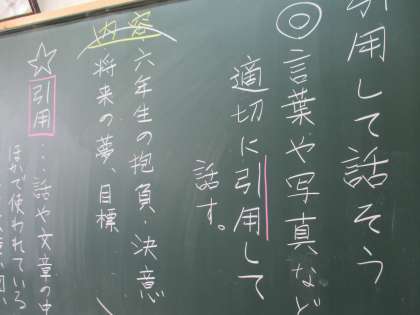 引用して話そう
◎言葉や写真など
適切に引用して
話す。
内容
六年生の抱負、決意
将来の夢、目標
☆引用…話や文章の中
ほかで使われている